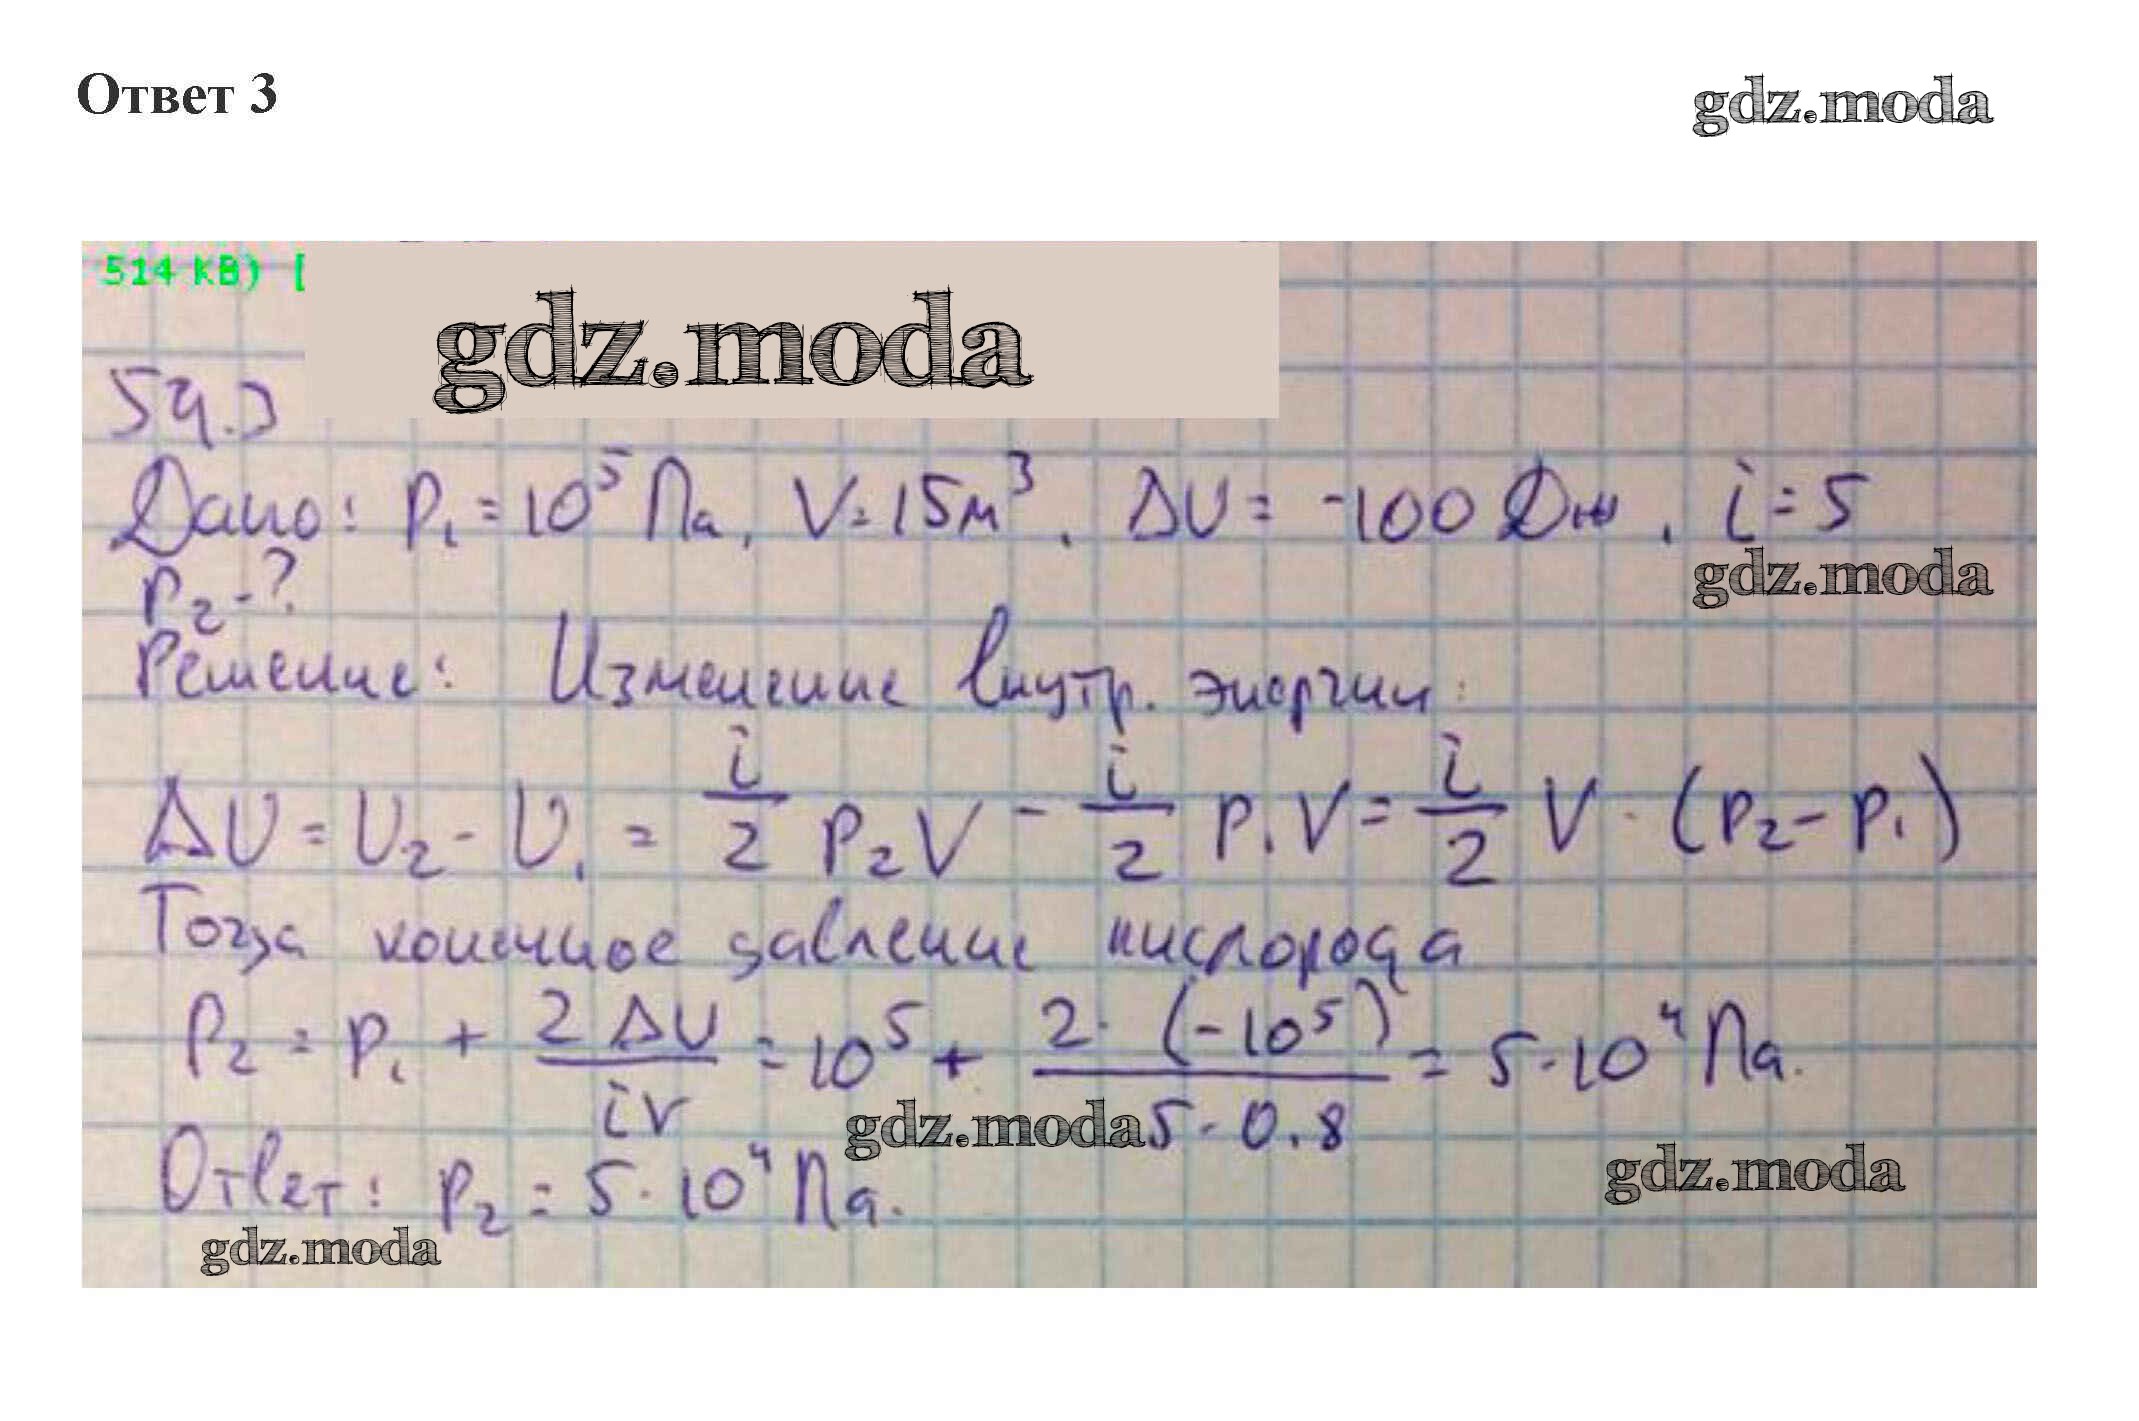 Ответ 3
gdz.moda
514 KB) [
gdz.moda
54.3
Дано: P₁ = 10⁵ Па, V = 15 м³, ΔU = -100 Дж, i = 5
gdz.moda
P₂ - ?
Решение: Изменение внутр. энергии:
ΔU = U₂ - U₁ = i/2 P₂V - i/2 P₁V = i/2 V · (P₂ - P₁)
Тогда конечное давление кислорода
P₂ = P₁ + 2ΔU/iV = 10⁵ + 2·(-10⁵)/5·0.8 = 5·10⁴ Па.
gdz.moda
gdz.moda
Ответ: P₂ = 5·10⁴ Па.
gdz.moda